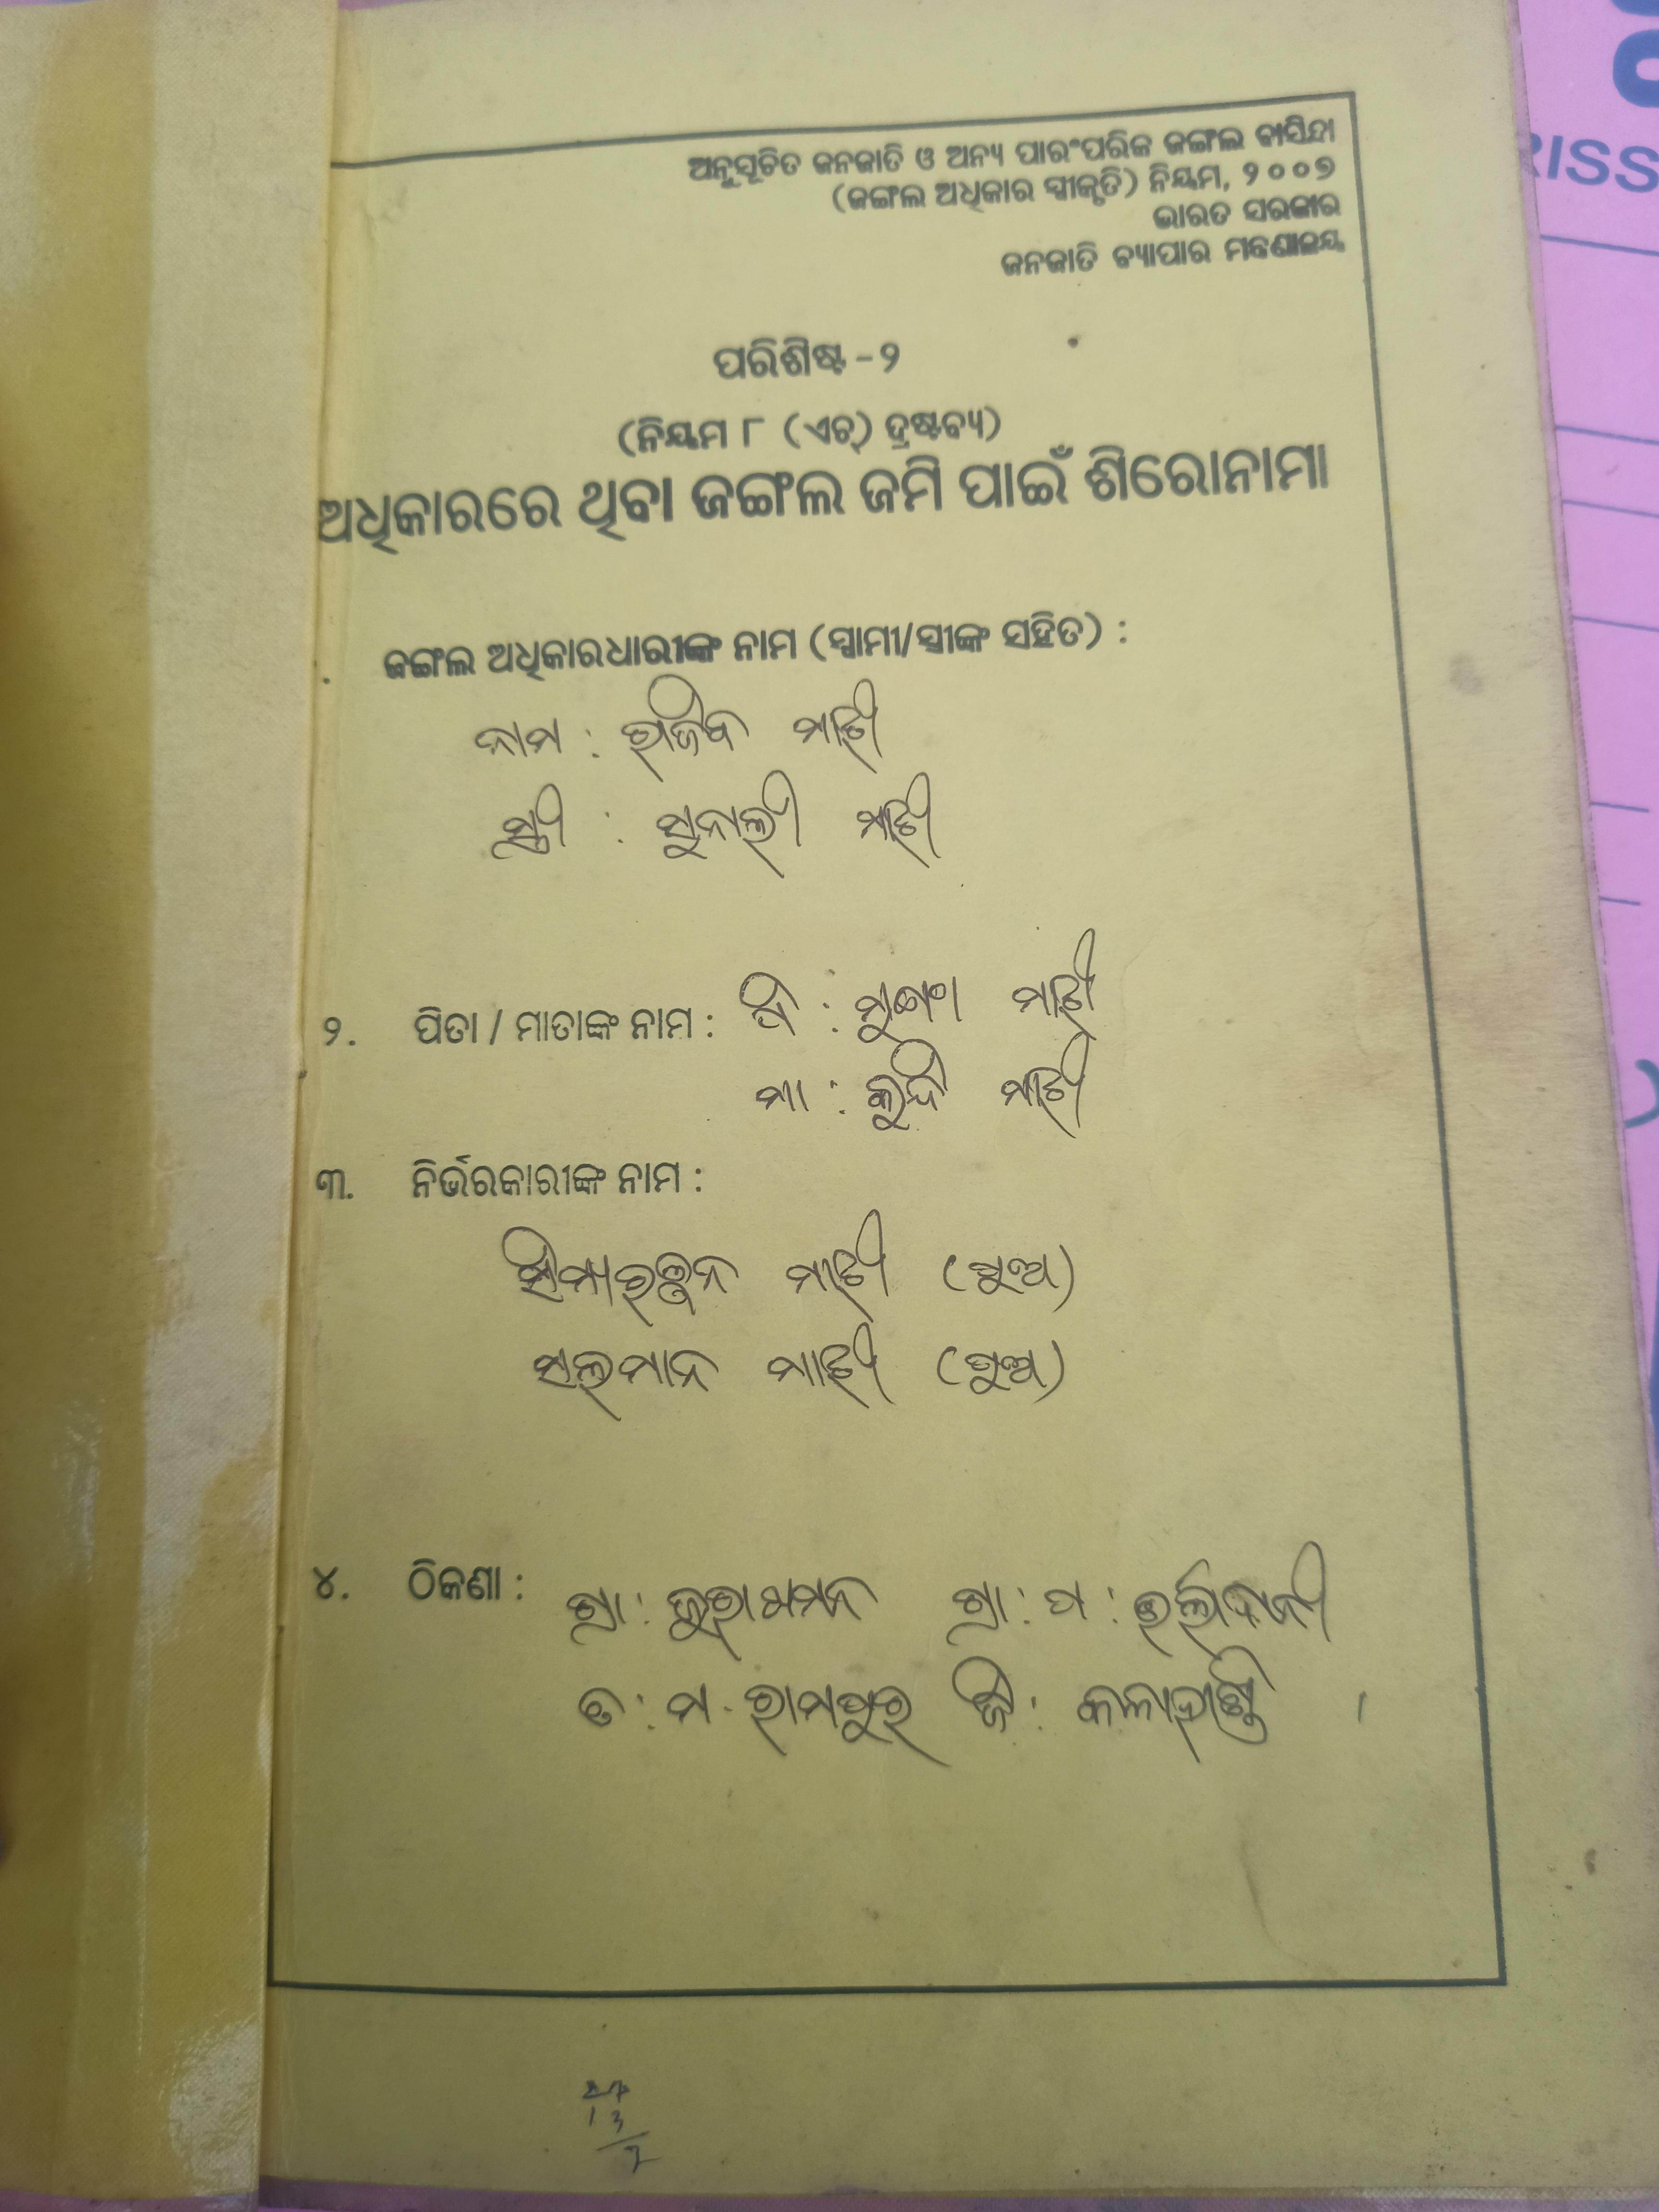 ଅନୁସୂଚିତ ଜନଜାତି ଓ ଅନ୍ୟ ପାରଂପରିକ ଜଙ୍ଗଲ ବାସିନ୍ଦା
(ଜଙ୍ଗଲ ଅଧିକାର ସ୍ୱୀକୃତି) ନିୟମ, ୨୦୦୭
ଭାରତ ସରକାର
ଜନଜାତି ବ୍ୟାପାର ମନ୍ତ୍ରଣାଳୟ
ପରିଶିଷ୍ଟ - ୨
(ନିୟମ ୮ (ଏଚ୍) ଦ୍ରଷ୍ଟବ୍ୟ)
ଅଧିକାରରେ ଥିବା ଜଙ୍ଗଲ ଜମି ପାଇଁ ଶିରୋନାମା
ଜଙ୍ଗଲ ଅଧିକାରଧାରୀଙ୍କ ନାମ (ସ୍ୱାମୀ/ସ୍ତ୍ରୀଙ୍କ ସହିତ) :
ନାମ : ରାଜିବ ମାଝୀ
ସ୍ତ୍ରୀ : ସୁନାଲୀ ମାଝୀ
୨. ପିତା / ମାତାଙ୍କ ନାମ : ପି : ମାଝୀ
ମା : କୁନ୍ଦି ମାଝୀ
୩. ନିର୍ଭରକାରୀଙ୍କ ନାମ :
ମାଝୀ (ପୁଅ)
ସଲମାନ ମାଝୀ (ପୁଅ)
୪. ଠିକଣା : ଗ୍ରା : ଗ୍ରା : ପ :
ବ : ମ. ରାମପୁର ଜି : କଳାହାଣ୍ଡି ।
RISS
27
13
2